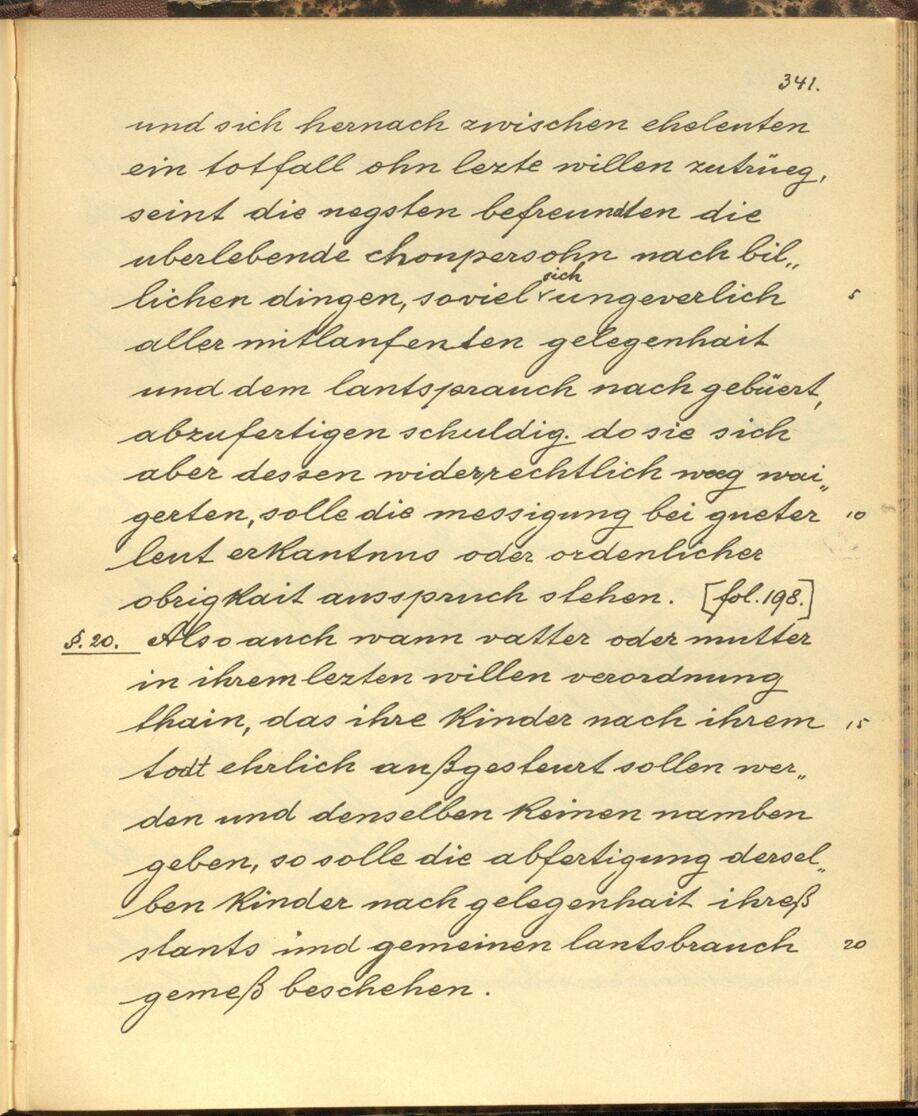 341.
und sich hernach zwischen eheleuten
ein totfall ohn lezte willen zutrüeg,
seint die negsten befreundten die
uberlebende chonpersohn nach bil„
lichen dingen, soviel sich ungeverlich 5
aller mitlaufenten gelegenhait
und dem lantsprauch nach gebüert,
abzufertigen schuldig. do sie sich
aber dessen widerrechtlich wai„
gerten, solle die messigung bei gueter 10
leut erkantnus oder ordenlicher
obrigkait ausspruch stehen. [fol. 198.]
§. 20. Also auch wann vatter oder mutter
in ihrem lezten willen verordnung
thain, das ihre kinder nach ihrem 15
todt ehrlich außgesteurt sollen wer„
den und denselben keinen namben
geben, so solle die abfertigung dersel„
ben kinder nach gelegenhait ihreß
stants und gemeinen lantsbrauch 20
gemeß beschehen.